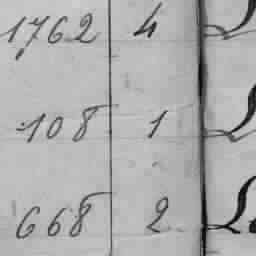 1762 4
108 1
668 2